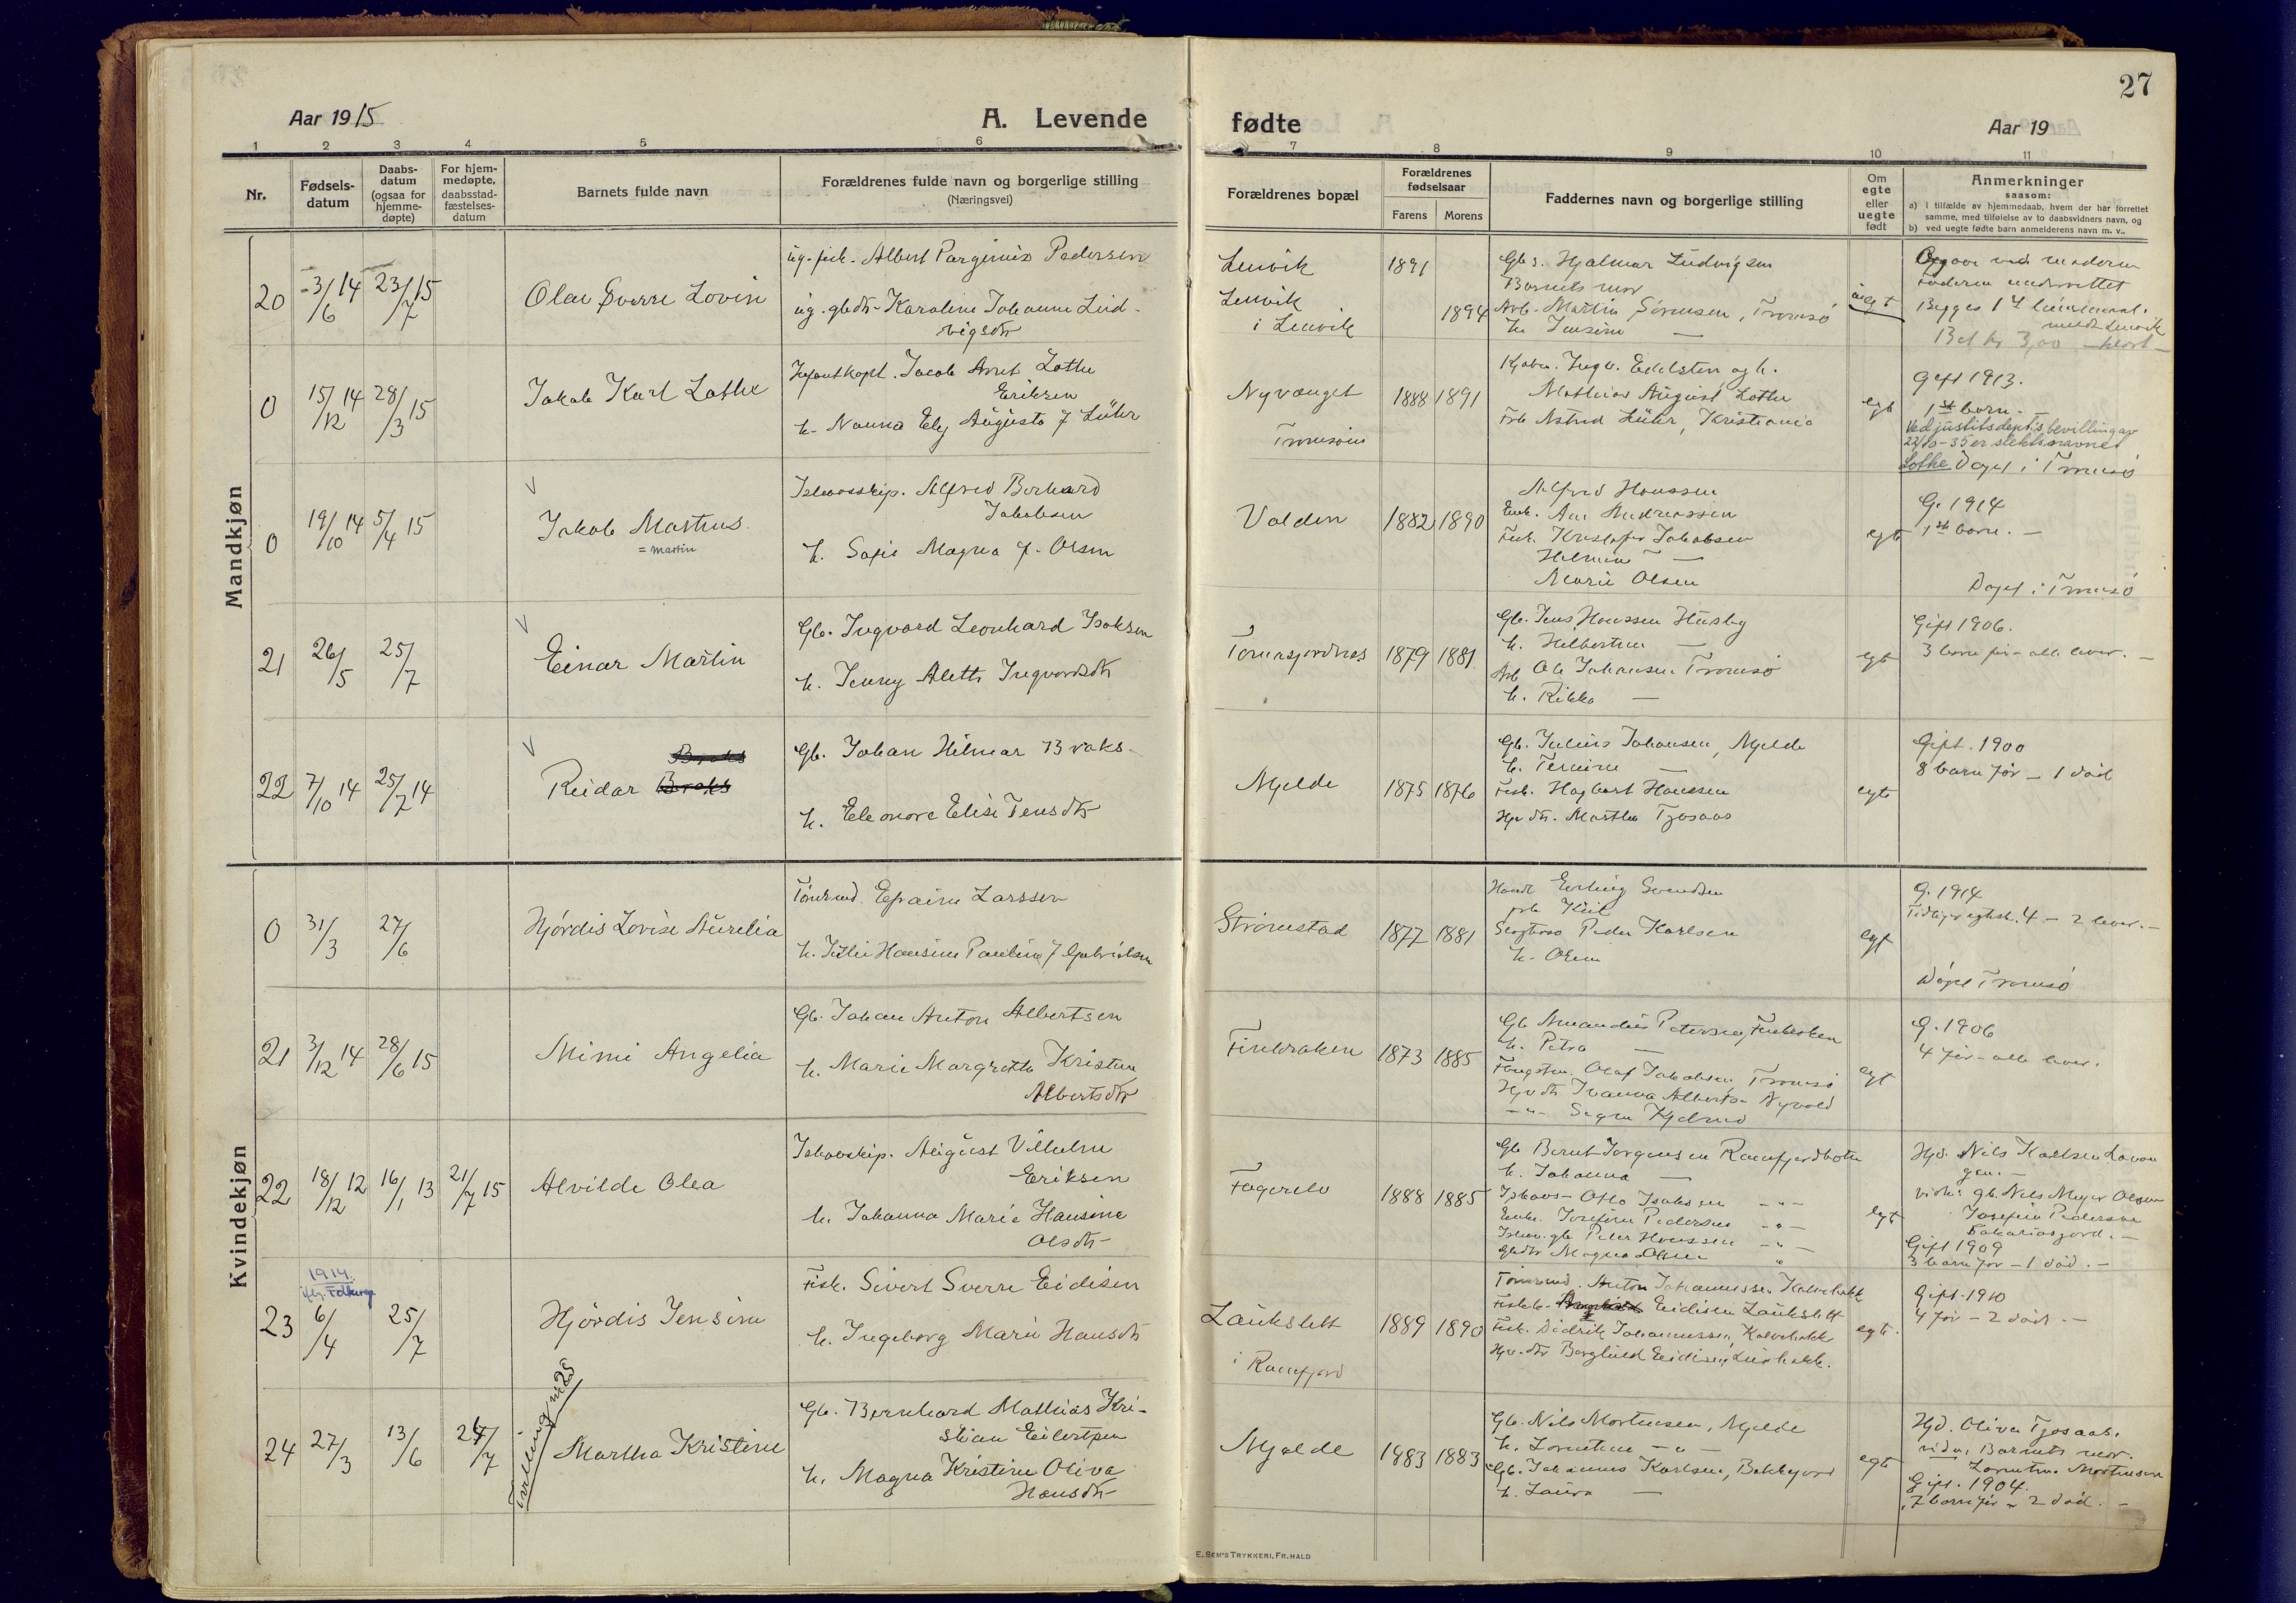 27
Aar 1915
A. Levende
fødte
Aar 19
1 2 3 4 5 6 7 8 9 10 11
Nr.
Fødsels-
datum
Daabs-
datum
(ogsaa for
hjemme-
døpte)
For hjem-
medøpte,
daabsstad-
fæstelses-
datum
Barnets fulde navn
Forældrenes fulde navn og borgerlige stilling
(Næringsvei)
Forældrenes bopæl
Forældrenes
fødselsaar
Farens Morens
Faddernes navn og borgerlige stilling
Om
egte
eller
uegte
født
Anmerkninger
saasom:
a) i tilfælde av hjemmedaab, hvem der har forrettet
samme, med tilføielse av to daabsvidners navn, og
b) ved uegte fødte barn anmelderens navn m. v..
Mandkjøn
20 3/6 14 23/7 15
Olav Sverre Lovin
Albert Parginius Pedersen
Karoline Johanne Lud-
vigsdtr
Lenvik
Lenvik
i Lenvik
1891
1894
Gbs. Hjalmar Ludvigsen
Barnets mor
Arb. Martin Sørensen, Tromsø
h. Jensine —
uegt
Opgave ved moderen
Faderen underrettet
Begges 1st
Lenvik
Bet kr 3,00
0 15/12 14 28/3 15
Jakob Karl Lothe
Jacob Arnt Lothe
Eriksen
h. Nanna Ely Augusta f Lühr
Nyvanget
Tromsøen
1888 1891
Kjøbm. Ingv. Edelsten og h.
Mathias August Lothe
Frk Astrid Lühr, Kristiania
egt
Gift 1913.
1st barn. —
Ved justitsdept.s bevilling av
22/10-35 er slektsnavnet
Lothe Døpt i Tromsø
0 19/10 14 5/4 15
Jakob Martinus
= Martin
Ishavsskip. Alfred Berhard
Jakobsen
h. Sofie Magna f. Olsen
Volden
1882 1890
Alfred Hanssen
Enk. Ane Andreassen
Fisk. Kristofer Jakobsen
Helmine —
Marie Olsen
egt
G. 1914
1st barn. —
Døpt i Tromsø
21 26/5 25/7
Einar Martin
Gb. Ingvard Leonhard Isaksen
h. Jenny Aleth Ingvardsdtr
Tomasjordnes
1879 1881
Gb. Jens Hanssen Husby
h. Helbertine —
Arb Ole Johansen Tromsø
h. Rikka —
egt
Gift 1906.
3 barn før - alle lever. —
22 7/10 14 25/7 14
Reidar
Gb. Johan Hilmar Braks-
h. Eleonore Elise Jensdtr
Mjelde
1875 1876
Gb. Julius Johansen, Mjelde
Fisk. Hagbart Hanssen
Martha Tjosaas
egt
Gift. 1900
8 barn før — 1 død
Kvindekjøn
0 31/3 27/6
Hjørdis Lovise Aurelia
Tømrmd. Efraim Larssen
h. Julie Hansine Pauline f Gabrielsen
Strømstad
1877 1881
Handl Erling Svendsen
Peder Karlsen
h. Oline
egt
G. 1914
4 — 2 lever. —
Døpt Tromsø
21 3/12 14 28/6 15
Mimi Angelia
Gb. Johan Anton Albertsen
h. Marie Margrethe Kristine
Albertsdtr
Finkroken
1873 1885
Gb Amandus Petersen, Finkroken
h. Petra —
Fangstm. Olaf Jakobsen Tromsø
Hjvdtr Ivanna Alberts- Nyvold
egt
G. 1906
4 før - alle lever.
22 18/12 12 16/1 13 21/7 15
Alvilde Olea
Ishavskip. August Vilhelm
Eriksen
h. Johanna Marie Hansine
Olsdtr
Fagerelv
1888 1885
Gb Bernt Jørgensen Ramfjordbotn
h. Johanna —
Ishavs- Otto Isaksen —"—
Enke. Josefine Pedersen —"—
Peter Hanssen —"—
Magna Olsen "
egt
Hjd. Nils Karlsen Lavan
gen. —
vidn: gb. Nils Meyer Olsen
Josefine Pedersen
Gift 1909
3 barn før — 1 død. —
1914.
23 6/4 25/7
Hjørdis Jensine
Fisk. Sivert Sverre Eidisen
h. Ingeborg Marie Hansdtr
Laukslett
i Ramfjord
1889 1890
Tømrmd. Anton Johannessen Kalvebakk
Eidisen Laukslett
Fisk. Didrik Johannessen Kalvebakk
Hjv. dtr Borghild Eidisen
egt.
Gift. 1910
4 før — 2 død. —
24 27/3 13/6 24/7
Tvilling
Martha Kristine
Gb. Bernhard Mathias Kri-
stian Eilertsen
h. Magna Kristine Oliva
Hansdtr
Mjelde
1883 1883
Gb. Nils Mortensen, Mjelde
h. Lorentine — " —
Gb. Johannes Karlsen, Bakkejord
h. Laura —
egt
Hjd. Oliva Tjosaas.
vidn: Barnets mor.
Lorentine Mortensen
Gift. 1904.
7 barn før — 2 død. —
E. SEM'S TRYKKERI, FR.HALD